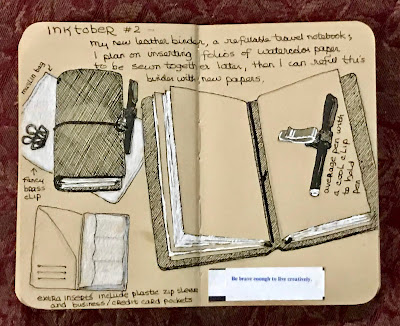 INKTOBER #2 -
My new leather binder, a refillable travel notebook;
I plan on inserting folios of watercolor paper
to be sewn together later, then I can refill this
binder with new papers.
muslin bag
fancy
brass
clip
average pen with
a tool clip
to hold
pen
Be brave enough to live creatively.
extra inserts include plastic zip sleeve
and business/credit card pockets